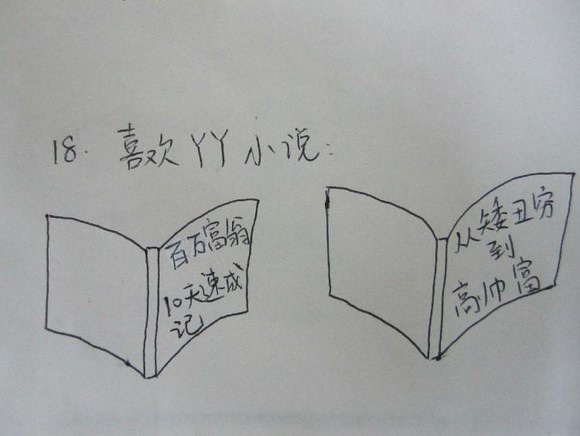 18. 喜欢YY小说:
百万富翁
10天速成
记
从矮丑穷
到
高帅富